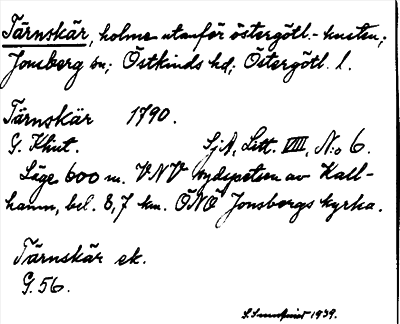 Tärnskär, holme utanför östergötl.-kusten;
Jonsberg sn; Östkinds hd; Östergötl. l.
Tärnskär 1790.
G. Klint. SjA, Litt. VIII, No 6.
Läge 600 m. VNV sydspetsen av Kall-
hamn, bel. 8,7 km. ÖNÖ Jonsbergs kyrka.
Tärnskär ek.
G. 56.
1939.